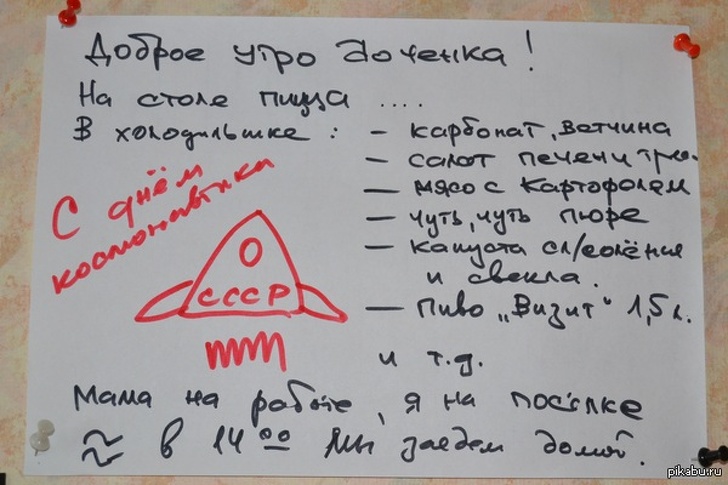 Доброе утро доченка!
На столе пицца ....
В холодильнике : – карбонат, ветчина
– салат печени
– мясо с картофолем
– чуть, чуть пюре
– капуста сл/солёная
и свекла.
– пиво „Визит“ 1,5 л.
и т.д.
С днём
космонавтика
О
СССР
Мама на работе, я на посылке
≈ в 14 00 мы заедем домой.
pikabu.ru